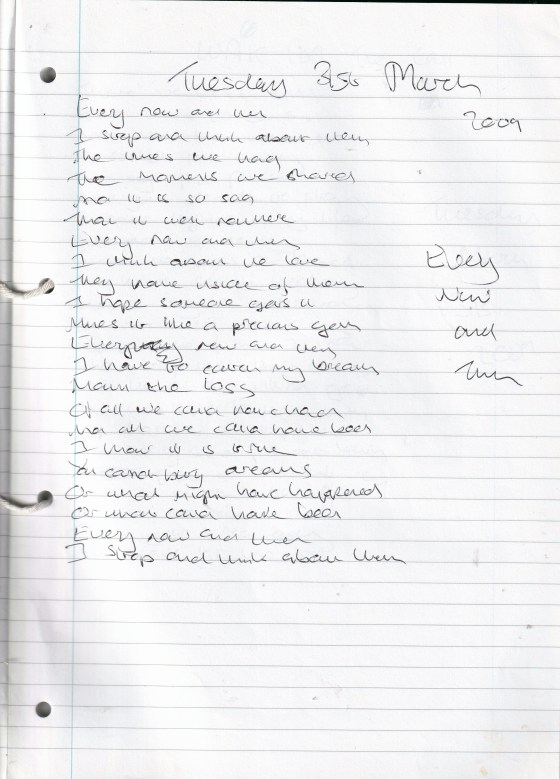 Tuesday 31st March
2009
Every now and then
I stop and think about them
The times we had
The moments we shared
And it is so sad
That it went nowhere
Every now and then
I think about the love
They have inside of them
I hope someone gets it
like a precious gem
Every now and then
I have to catch my breath
Mourn the loss
Of all we could have had
And all we could have been
I know it is true
You cannot buy dreams
Or what might have happened
Or what could have been
Every now and then
I stop and think about them
Every
Now
and
Then